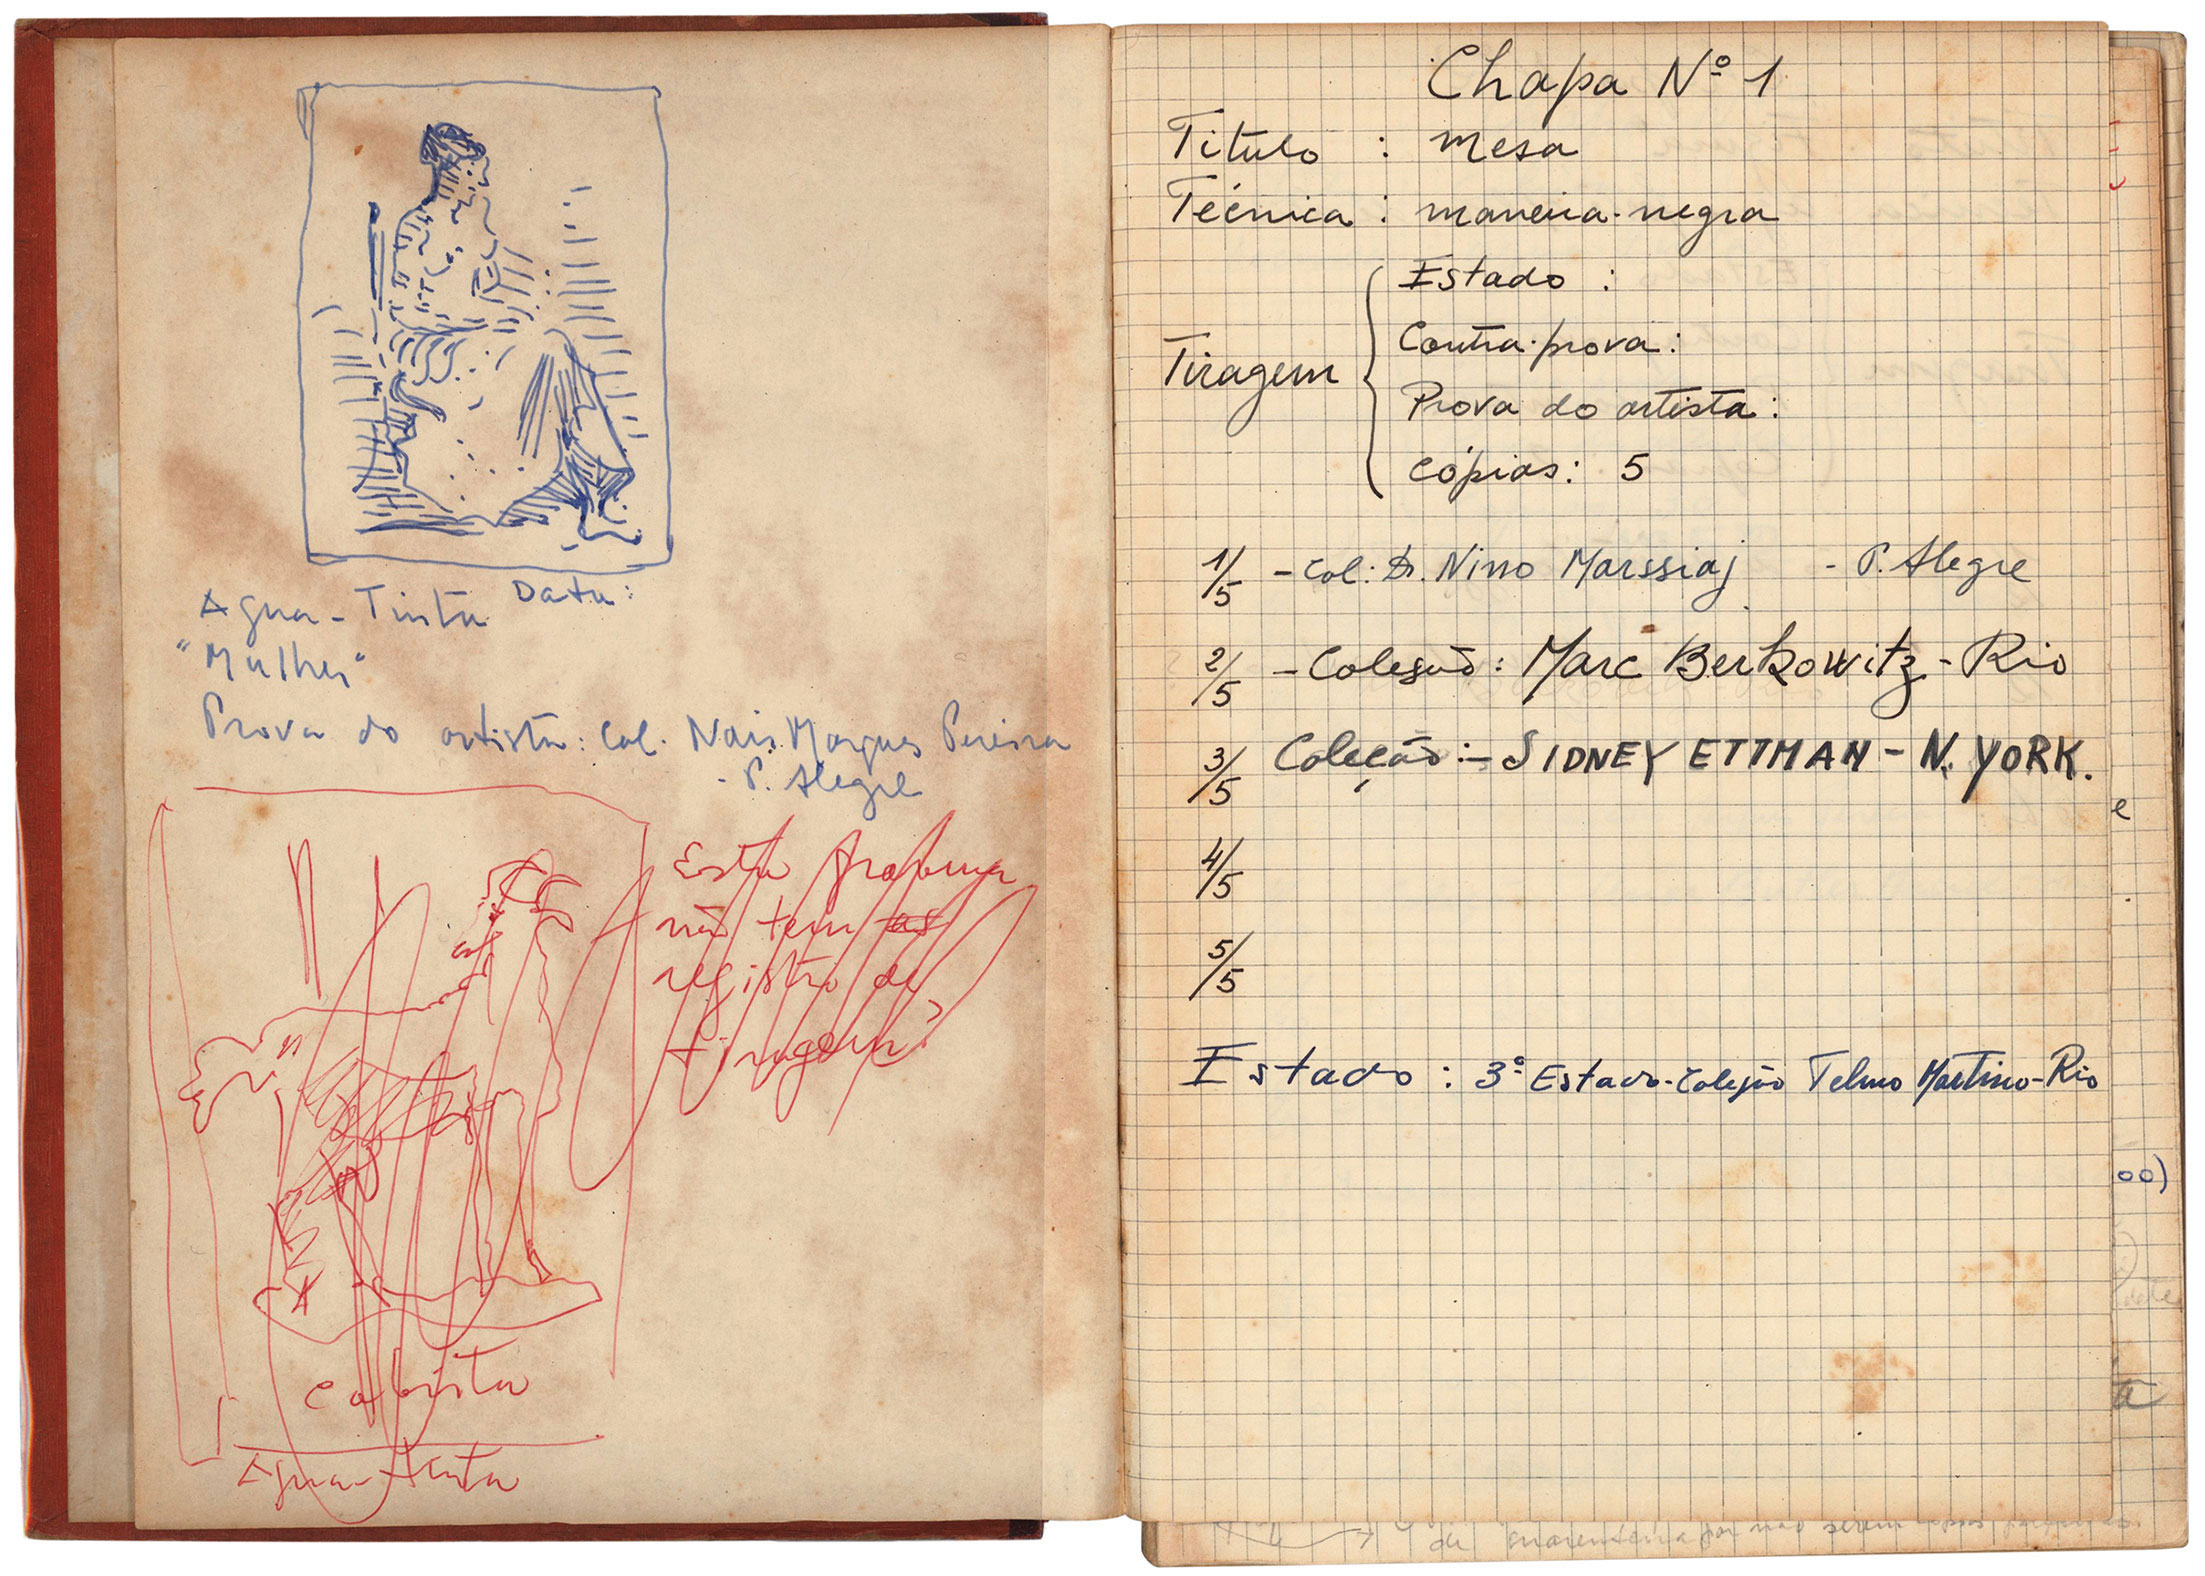 Agua-Tinta Data:
"Mulher"
Prova do artista: Col. Nais Marques Pereira
- P. Alegre
Esta gravura
não tem as
registro de
tiragem?
Cabrita
Agua-tinta
Chapa Nº 1
Titulo : mesa
Técnica : maneira-negra
Tiragem
Estado :
Contra-prova:
Prova do artista:
Cópias: 5
1/5 - Col: Dr. Nino Marssiaj - P. Alegre
2/5 - Coleção: Marc Berkowitz - Rio
3/5 Coleção:- SIDNEY ETTMAN - N. YORK.
4/5
5/5
Estado : 3º Estado-Coleção Telmo Martino-Rio
e
oo)
de